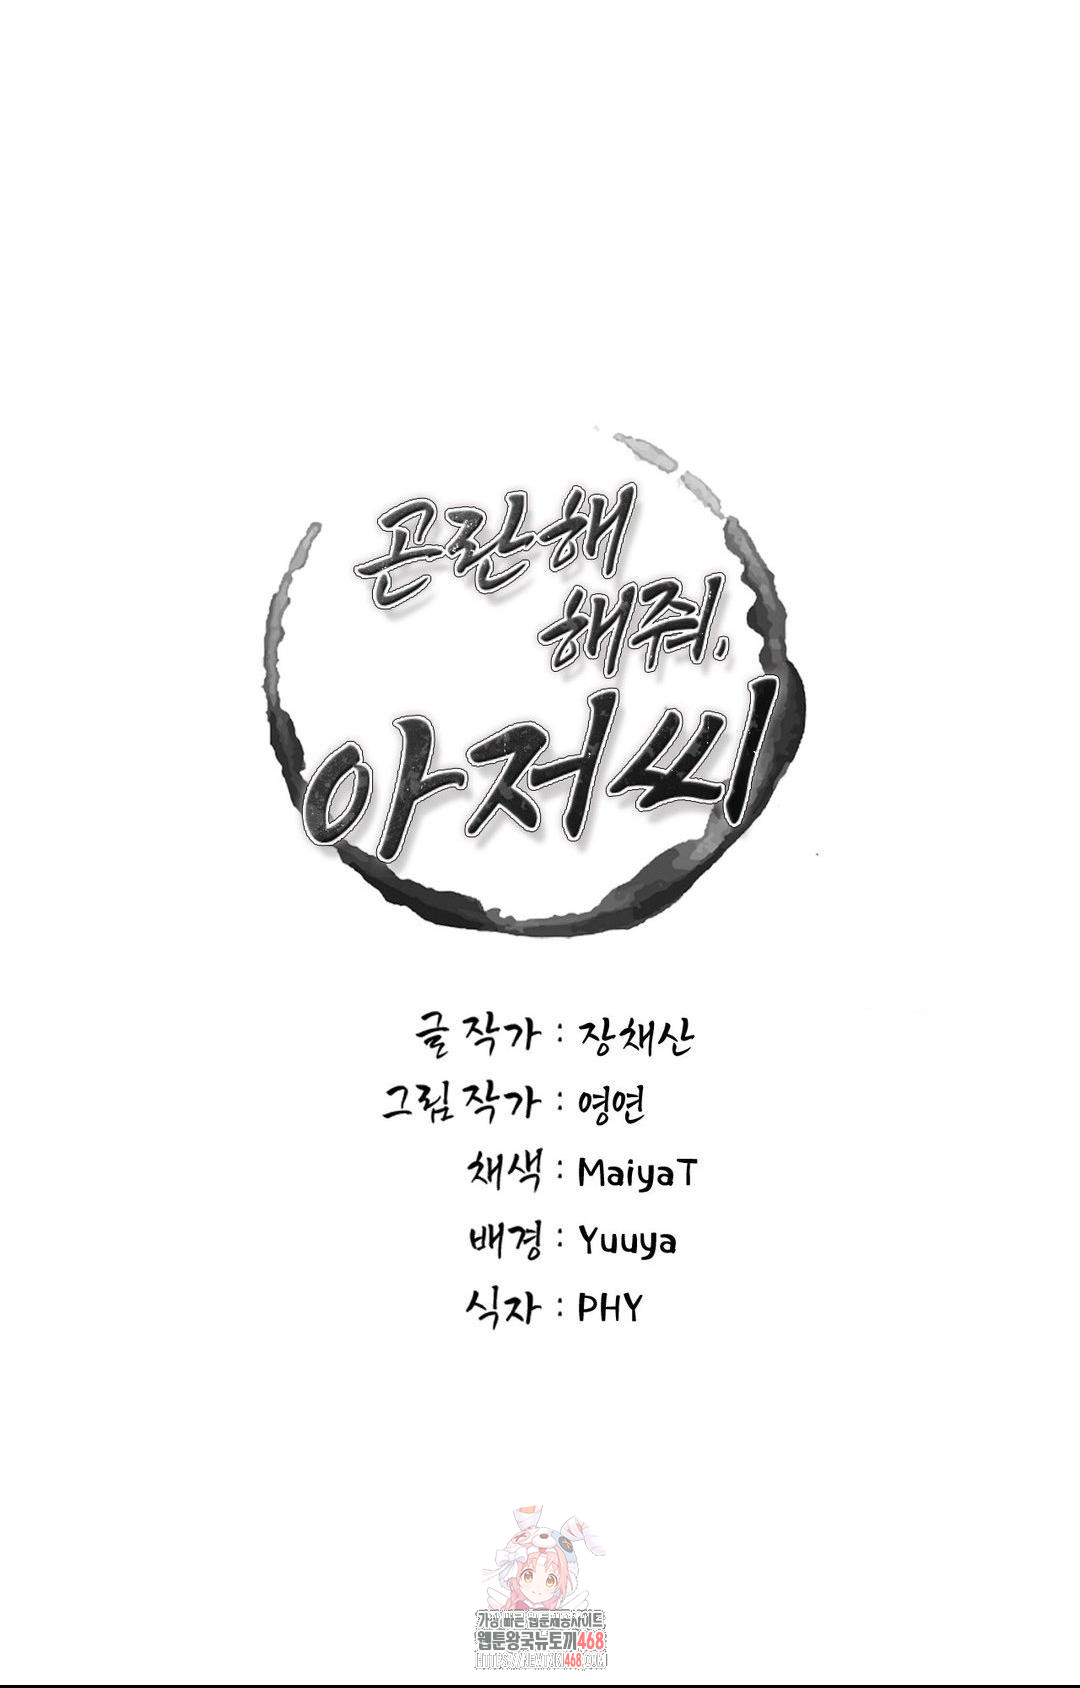 곤란해
해줘,
아저씨
글 작가 : 장채산
그림 작가 : 영연
채색 : MaiyaT
배경 : Yuuya
식자 : PHY
가장 빠른 웹툰제공사이트
웹툰왕국뉴토끼468
HTTPS://NEWTOKI468.COM